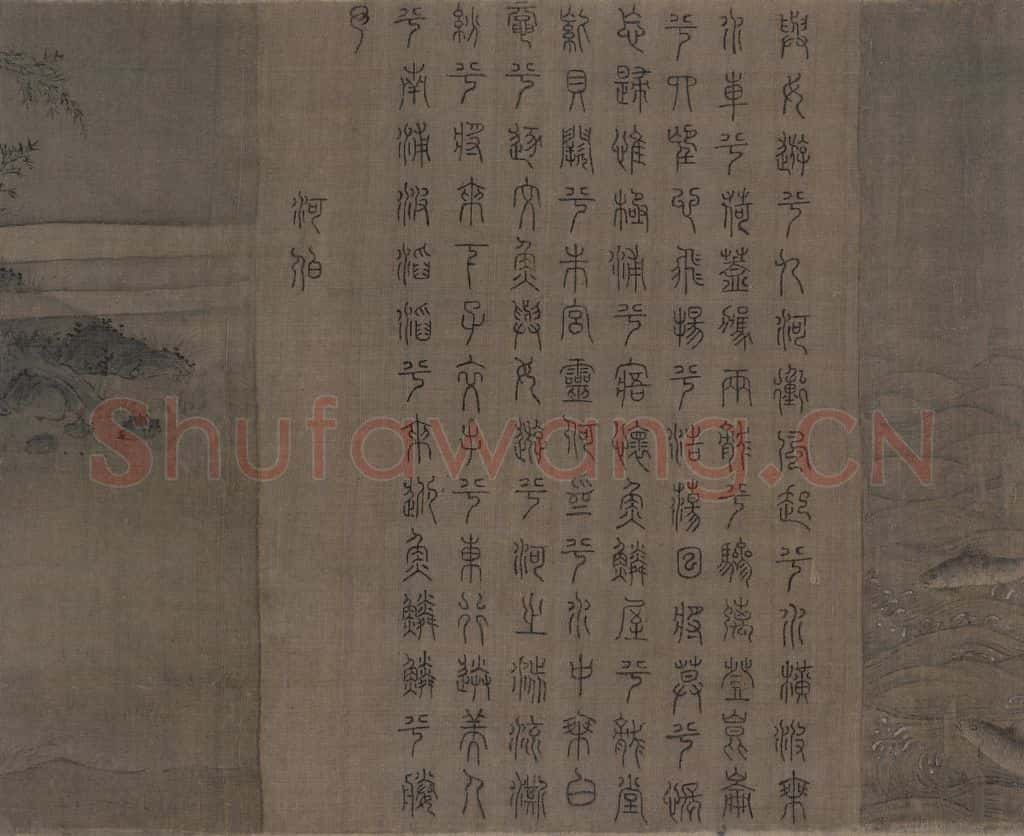 與女遊兮九河衝風起兮水橫波乘
水車兮荷蓋駕兩龍兮驂螭登崑崙
兮四望心飛揚兮浩蕩日將暮兮悵
忘歸惟極浦兮寤懷魚鱗屋兮龍堂
紫貝闕兮朱宮靈何爲兮水中乘白
黿兮逐文魚與女遊兮河之渚流澌
紛兮將來下子交手兮東行送美人
兮南浦波滔滔兮來迎魚鱗鱗兮媵
予
河伯
Shufawang.CN